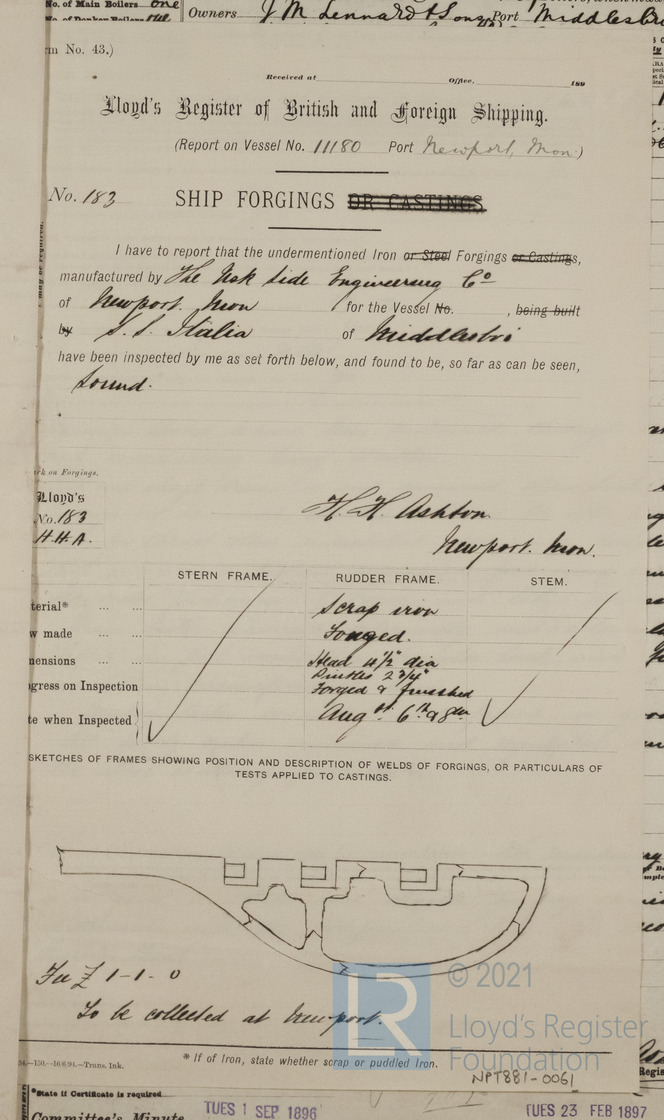 No. of Main Boilers one
No. of Donkey Boilers one
Owners J. M. Lennard & Sons Port Middlesbro
m No. 43.)
Received at Office, 189
Lloyd's Register of British and Foreign Shipping.
(Report on Vessel No. 11180 Port Newport, Mon.)
No. 183 SHIP FORGINGS OR CASTINGS
I have to report that the undermentioned Iron or Steel Forgings or Castings,
manufactured by The Usk Side Engineering Co
of Newport. Mon for the Vessel No. , being built
by S.S. Italia of Middlesbro
have been inspected by me as set forth below, and found to be, so far as can be seen,
Sound.
may be required.
rk on Forgings.
Lloyd's
No. 183
H.H.A.
H. H. Ashton.
Newport. Mon.
STERN FRAME. RUDDER FRAME. STEM.
terial* ... ... Scrap iron
w made ... ... Forged.
mensions ... ... Head 4½" dia
Pintles 2¾"
gress on Inspection Forged & finished
te when Inspected Augst. 6th & 8th
SKETCHES OF FRAMES SHOWING POSITION AND DESCRIPTION OF WELDS OF FORGINGS, OR PARTICULARS OF
TESTS APPLIED TO CASTINGS.
Fee £ 1-1-0
To be collected at Newport.
© 2021
Lloyd's Register
Foundation
LR
* If of Iron, state whether scrap or puddled Iron.
—150.—16/6/94.—Trans. Ink.
NPT881-0061
*State if Certificate is required
Committee's Minute
TUES 1 SEP 1896
TUES 23 FEB 1897